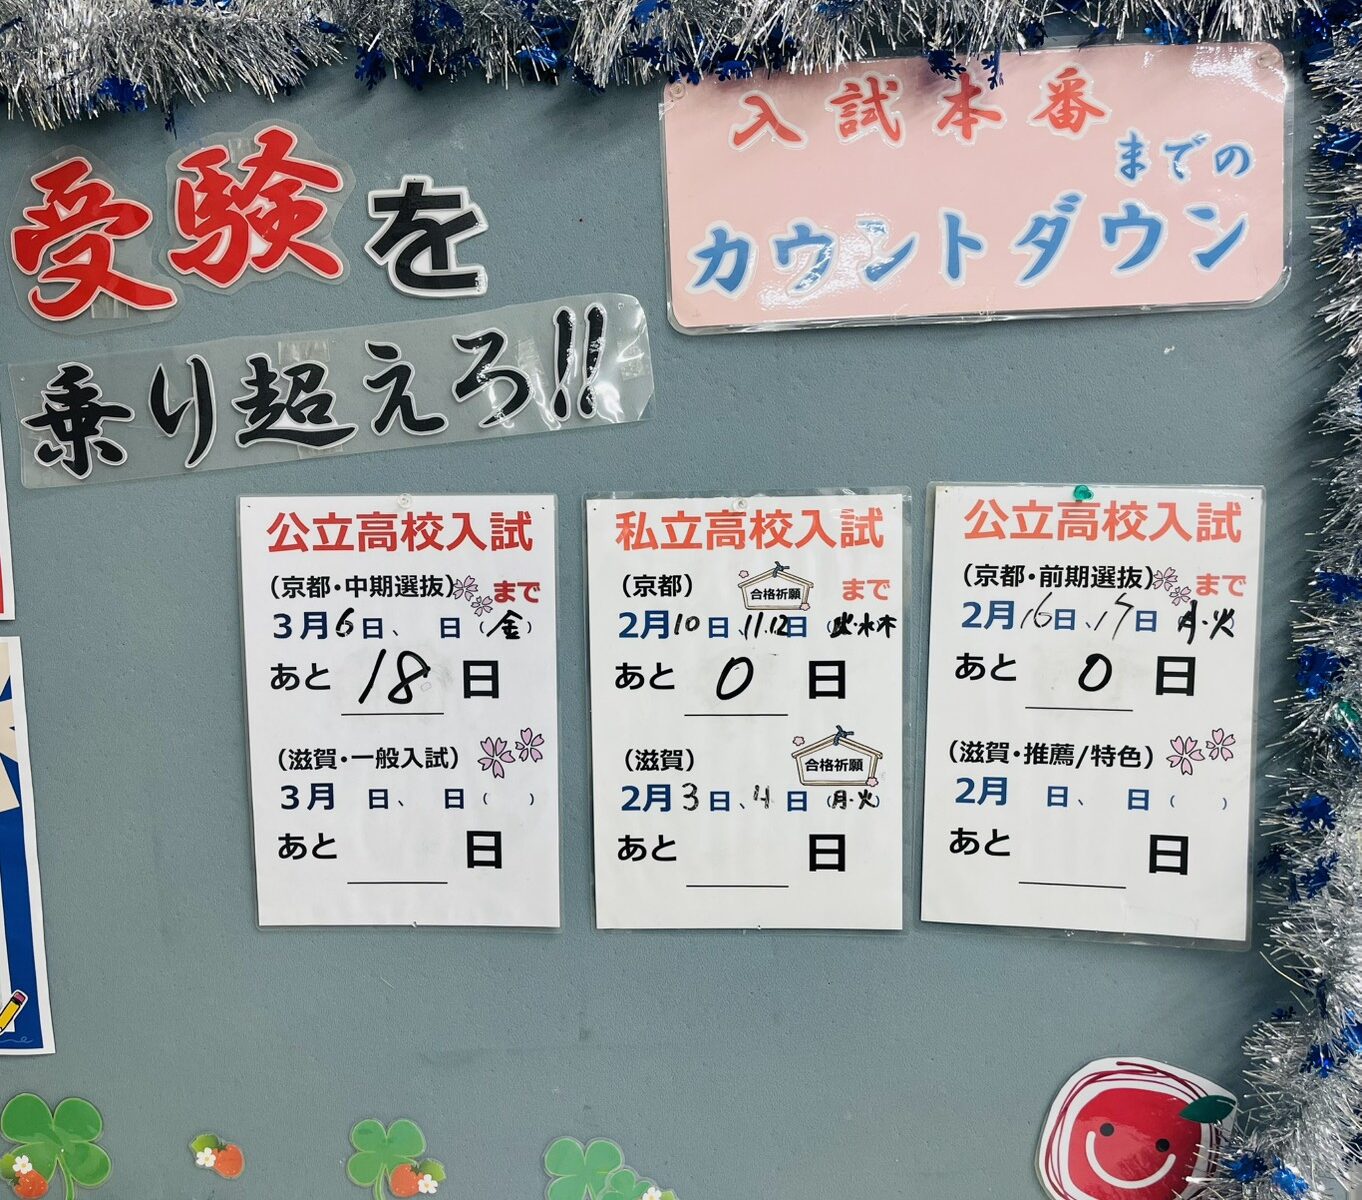 受験を
乗り超えろ!!
入試本番
までの
カウントダウン
公立高校入試
(京都・中期選抜)まで
3月6日、 日(金)
あと 18 日
(滋賀・一般入試)
3月 日、 日( )
あと 日
私立高校入試
(京都) 合格祈願 まで
2月10日、11.12日(火・水木
あと 0 日
(滋賀) 合格祈願
2月3日、4日(月・火)
あと 日
公立高校入試
(京都・前期選抜)まで
2月16日、17日 月・火
あと 0 日
(滋賀・推薦/特色)
2月 日、 日( )
あと 日